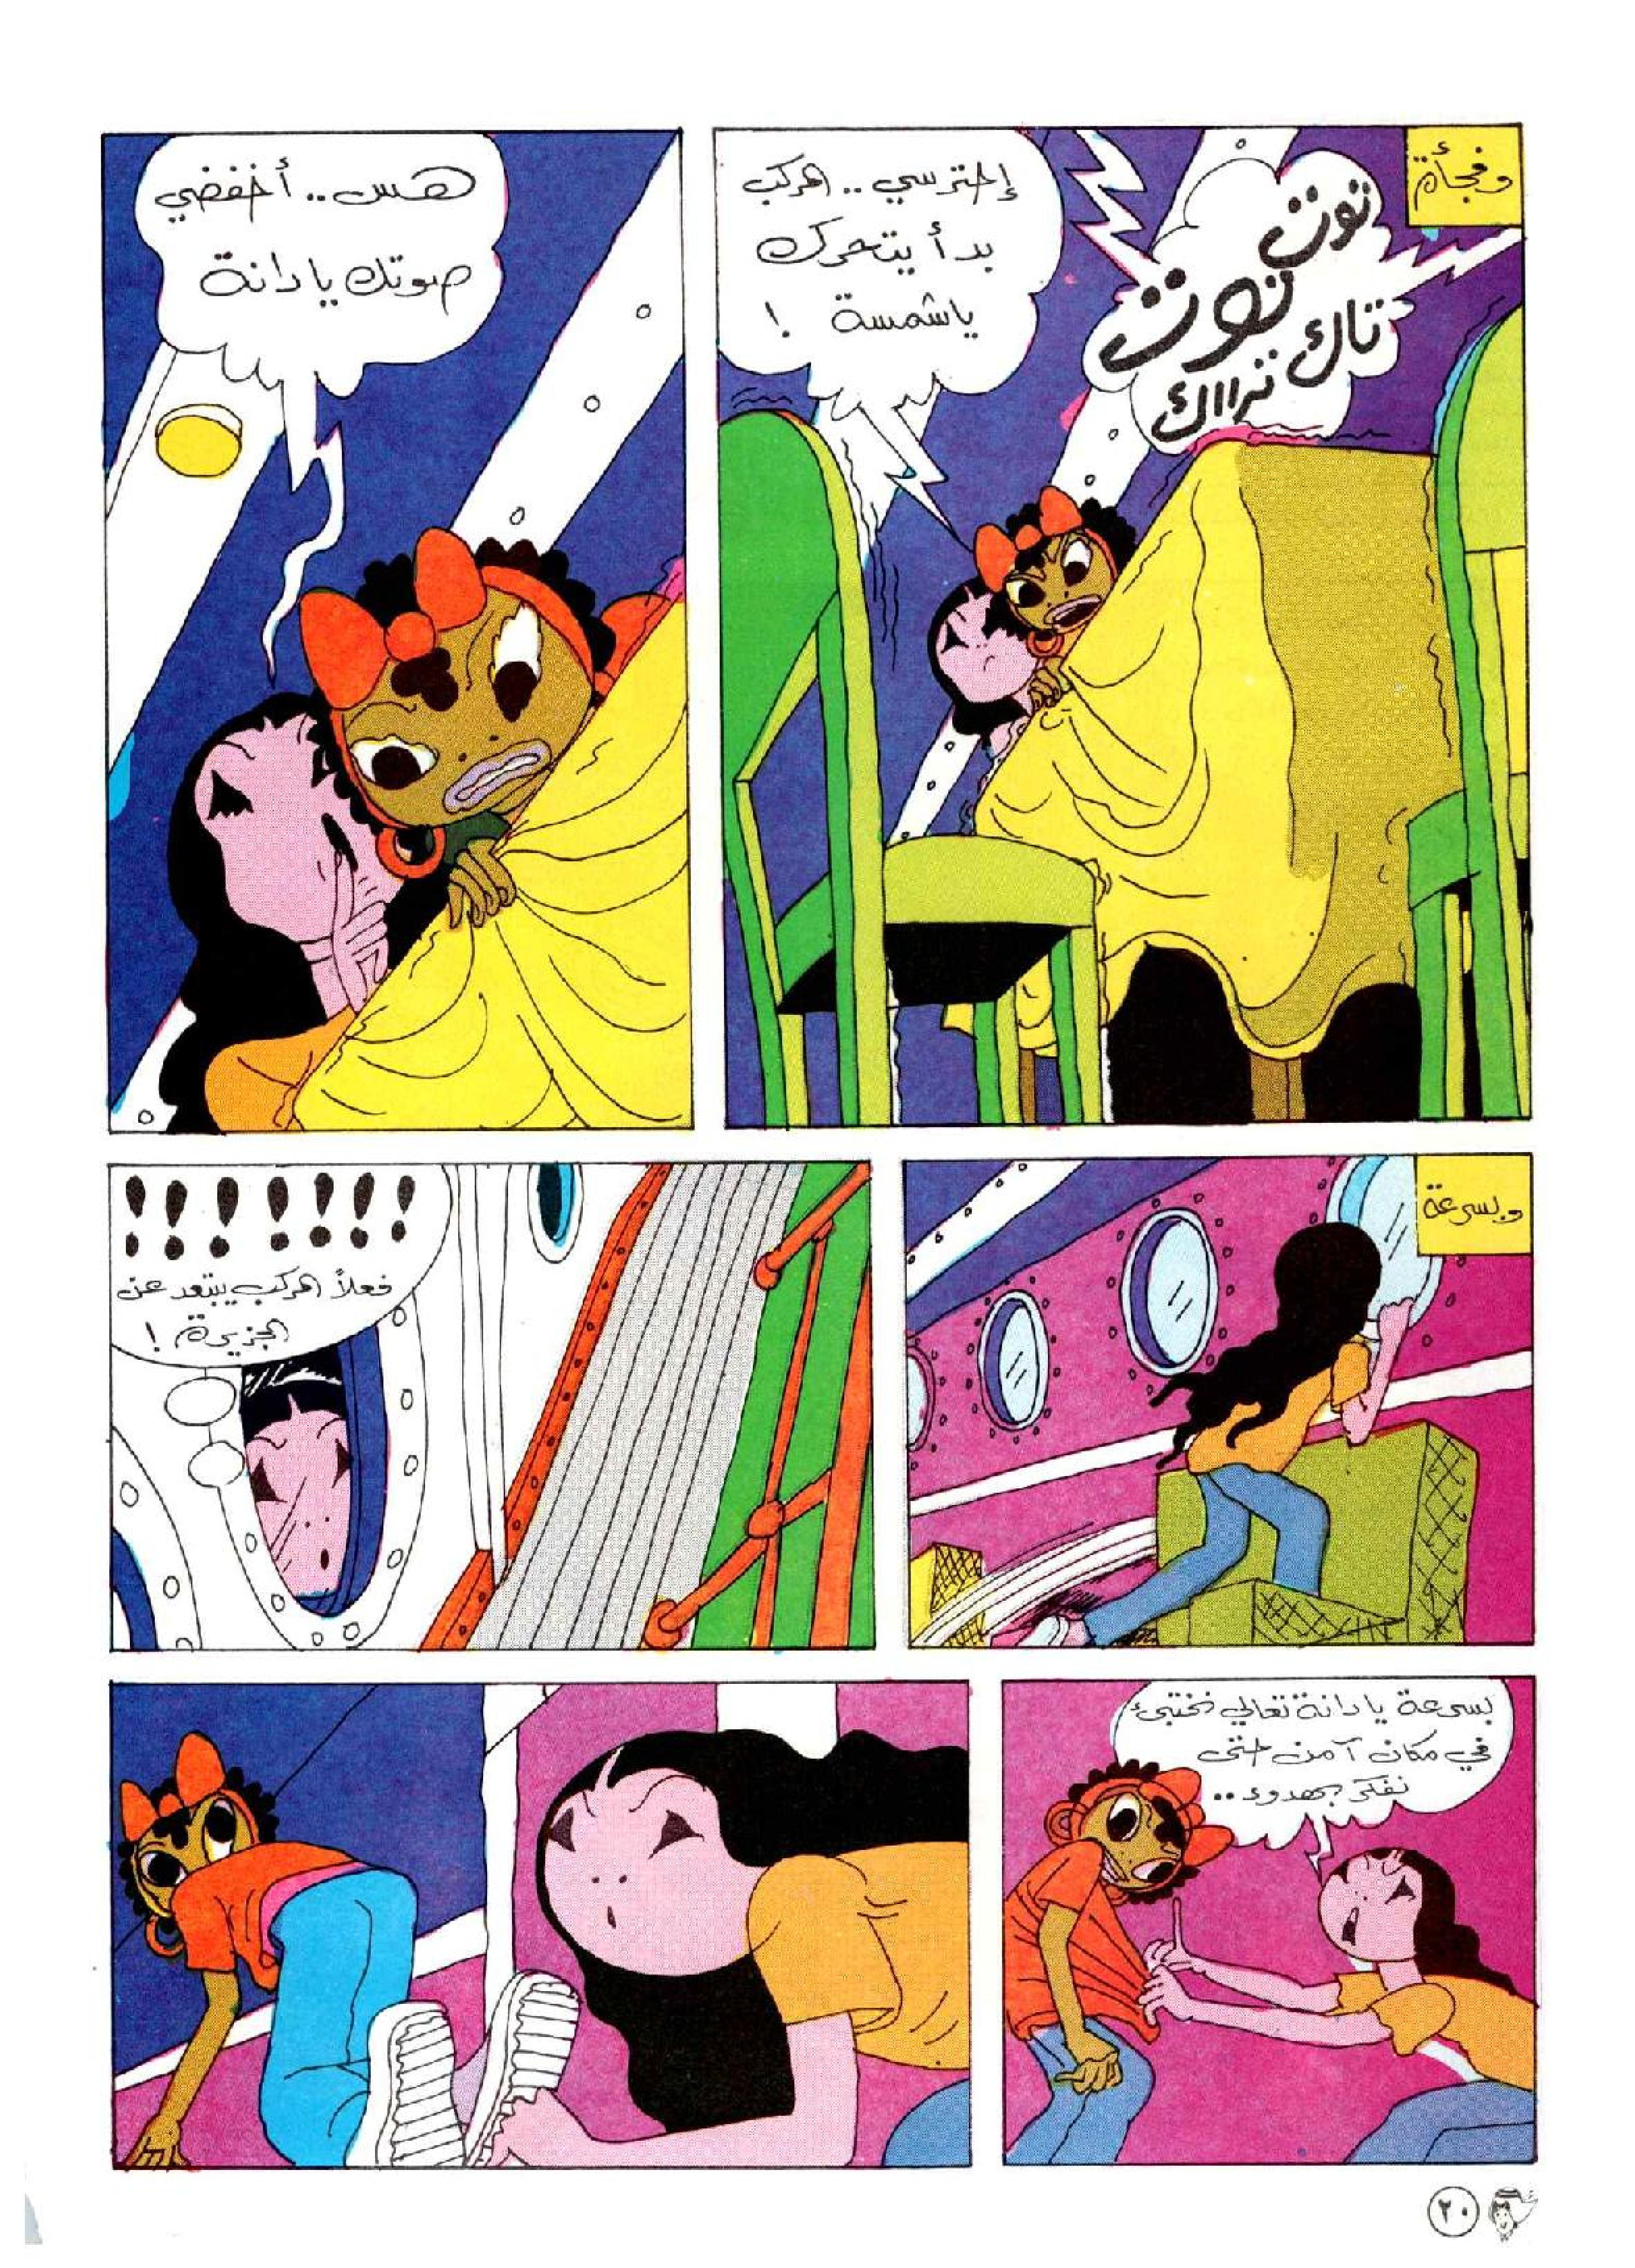 وفجأة
توت
توت
تاك
تراااك
إحترسي .. المركب
بدأ يتحرك
ياشمسة !
هس.. أخفضي
صوتك يا دانة
وبسرعة
!!!!!!!
فعلاً المركب يبتعد عن
الجزيرة !
بسرعة يا دانة تعالي نختبئ
في مكان آمن حتى
نفكر بهدوء ..
٢٠